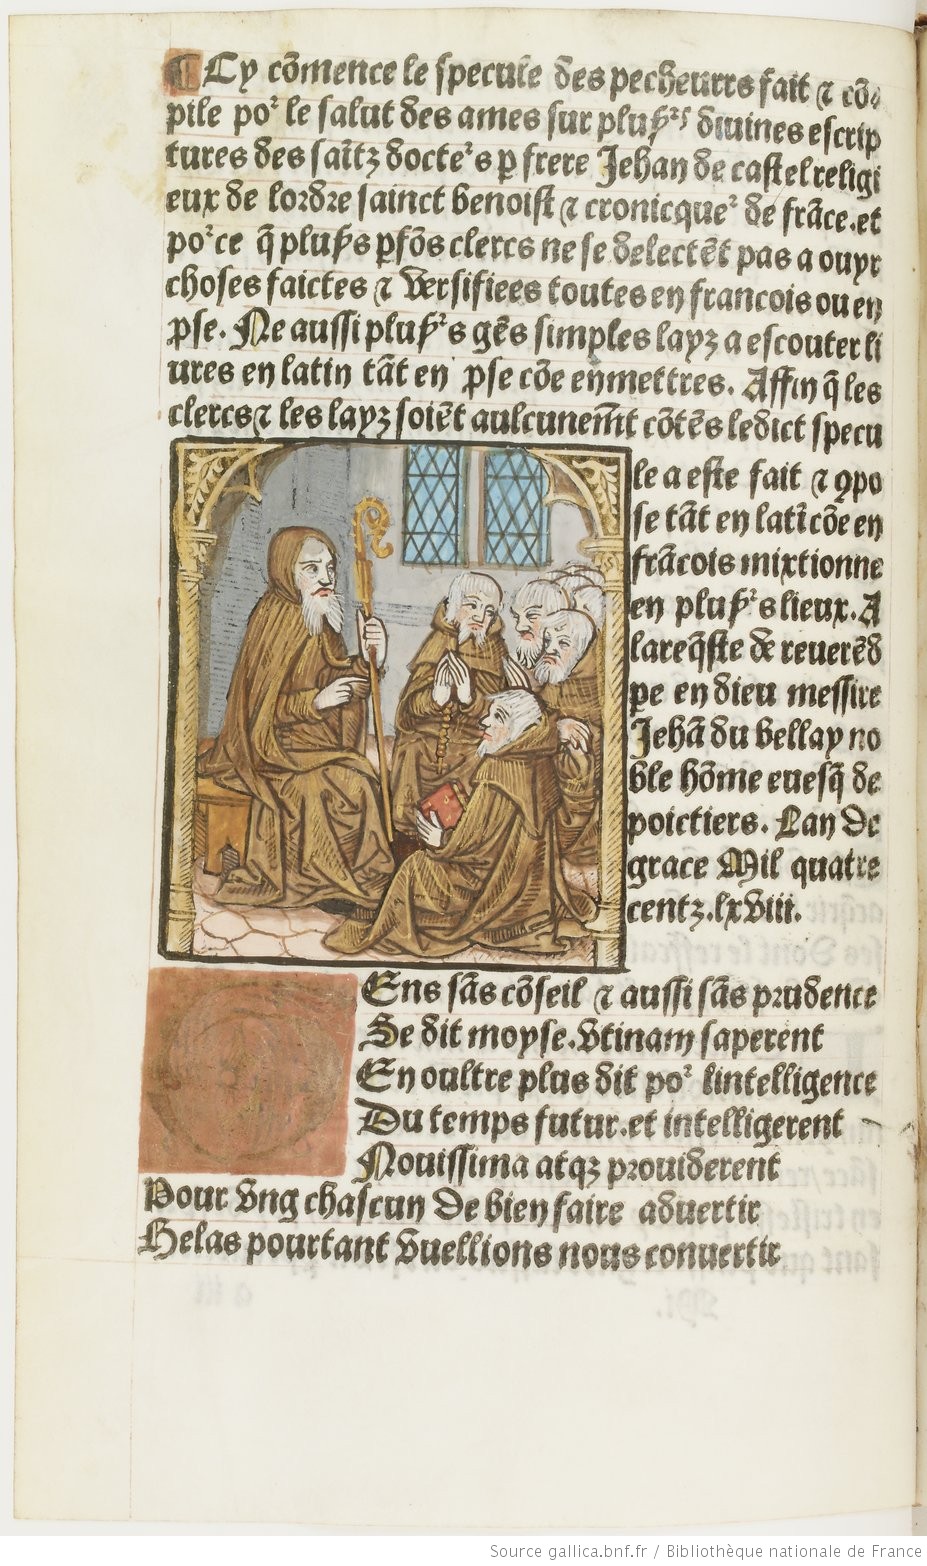 ¶ Cy cõmence le specule des pecheurrs fait ⁊ cõ
pile poꝛ᷑ le salut des ames sur plusꝰ᷑s diuines escrip
tures des saĩtz docte᷑s ꝑ frere Jehan de castel religi
eux de lordre sainct benoist ⁊ cronicque᷑ de frãce.et
po᷑ce q̃ plus᷑s ꝑsõs clercs ne se delectẽt pas a ouyr
choses faictes ⁊ versifiees toutes en francois ou en
ꝓse. Ne aussi plus᷑s gẽs simples layz a escouter li
ures en latin tãt en ꝓse cõe en mettres. Affin q̃ les
clercs ⁊ les layz soiẽt aulcunem̃t cõtẽs ledict specu
le a este fait ⁊ ꝯpo
se tãt en latĩ cõe en
frãcois mixtionne
en plus᷑s lieux. A
la req̃ste de reuerẽd
ꝑe en dieu messire
Jehã du bellay no
ble hõme euesq̃ de
poictiers. Lan de
grace Mil quatre
centz.lxviii.
Ens sãs cõseil ⁊ aussi sãs prudence
Se dit moyse.vtinam saperent
En oultre plus dit po᷑ lintelligence
Du temps futur.et intelligerent
Nouissima atqꝫ prouiderent
Pour vng chascun de bien faire aduertir
Helas pourtant vuellions nous conuertir
Source gallica.bnf.fr / Bibliothèque nationale de France